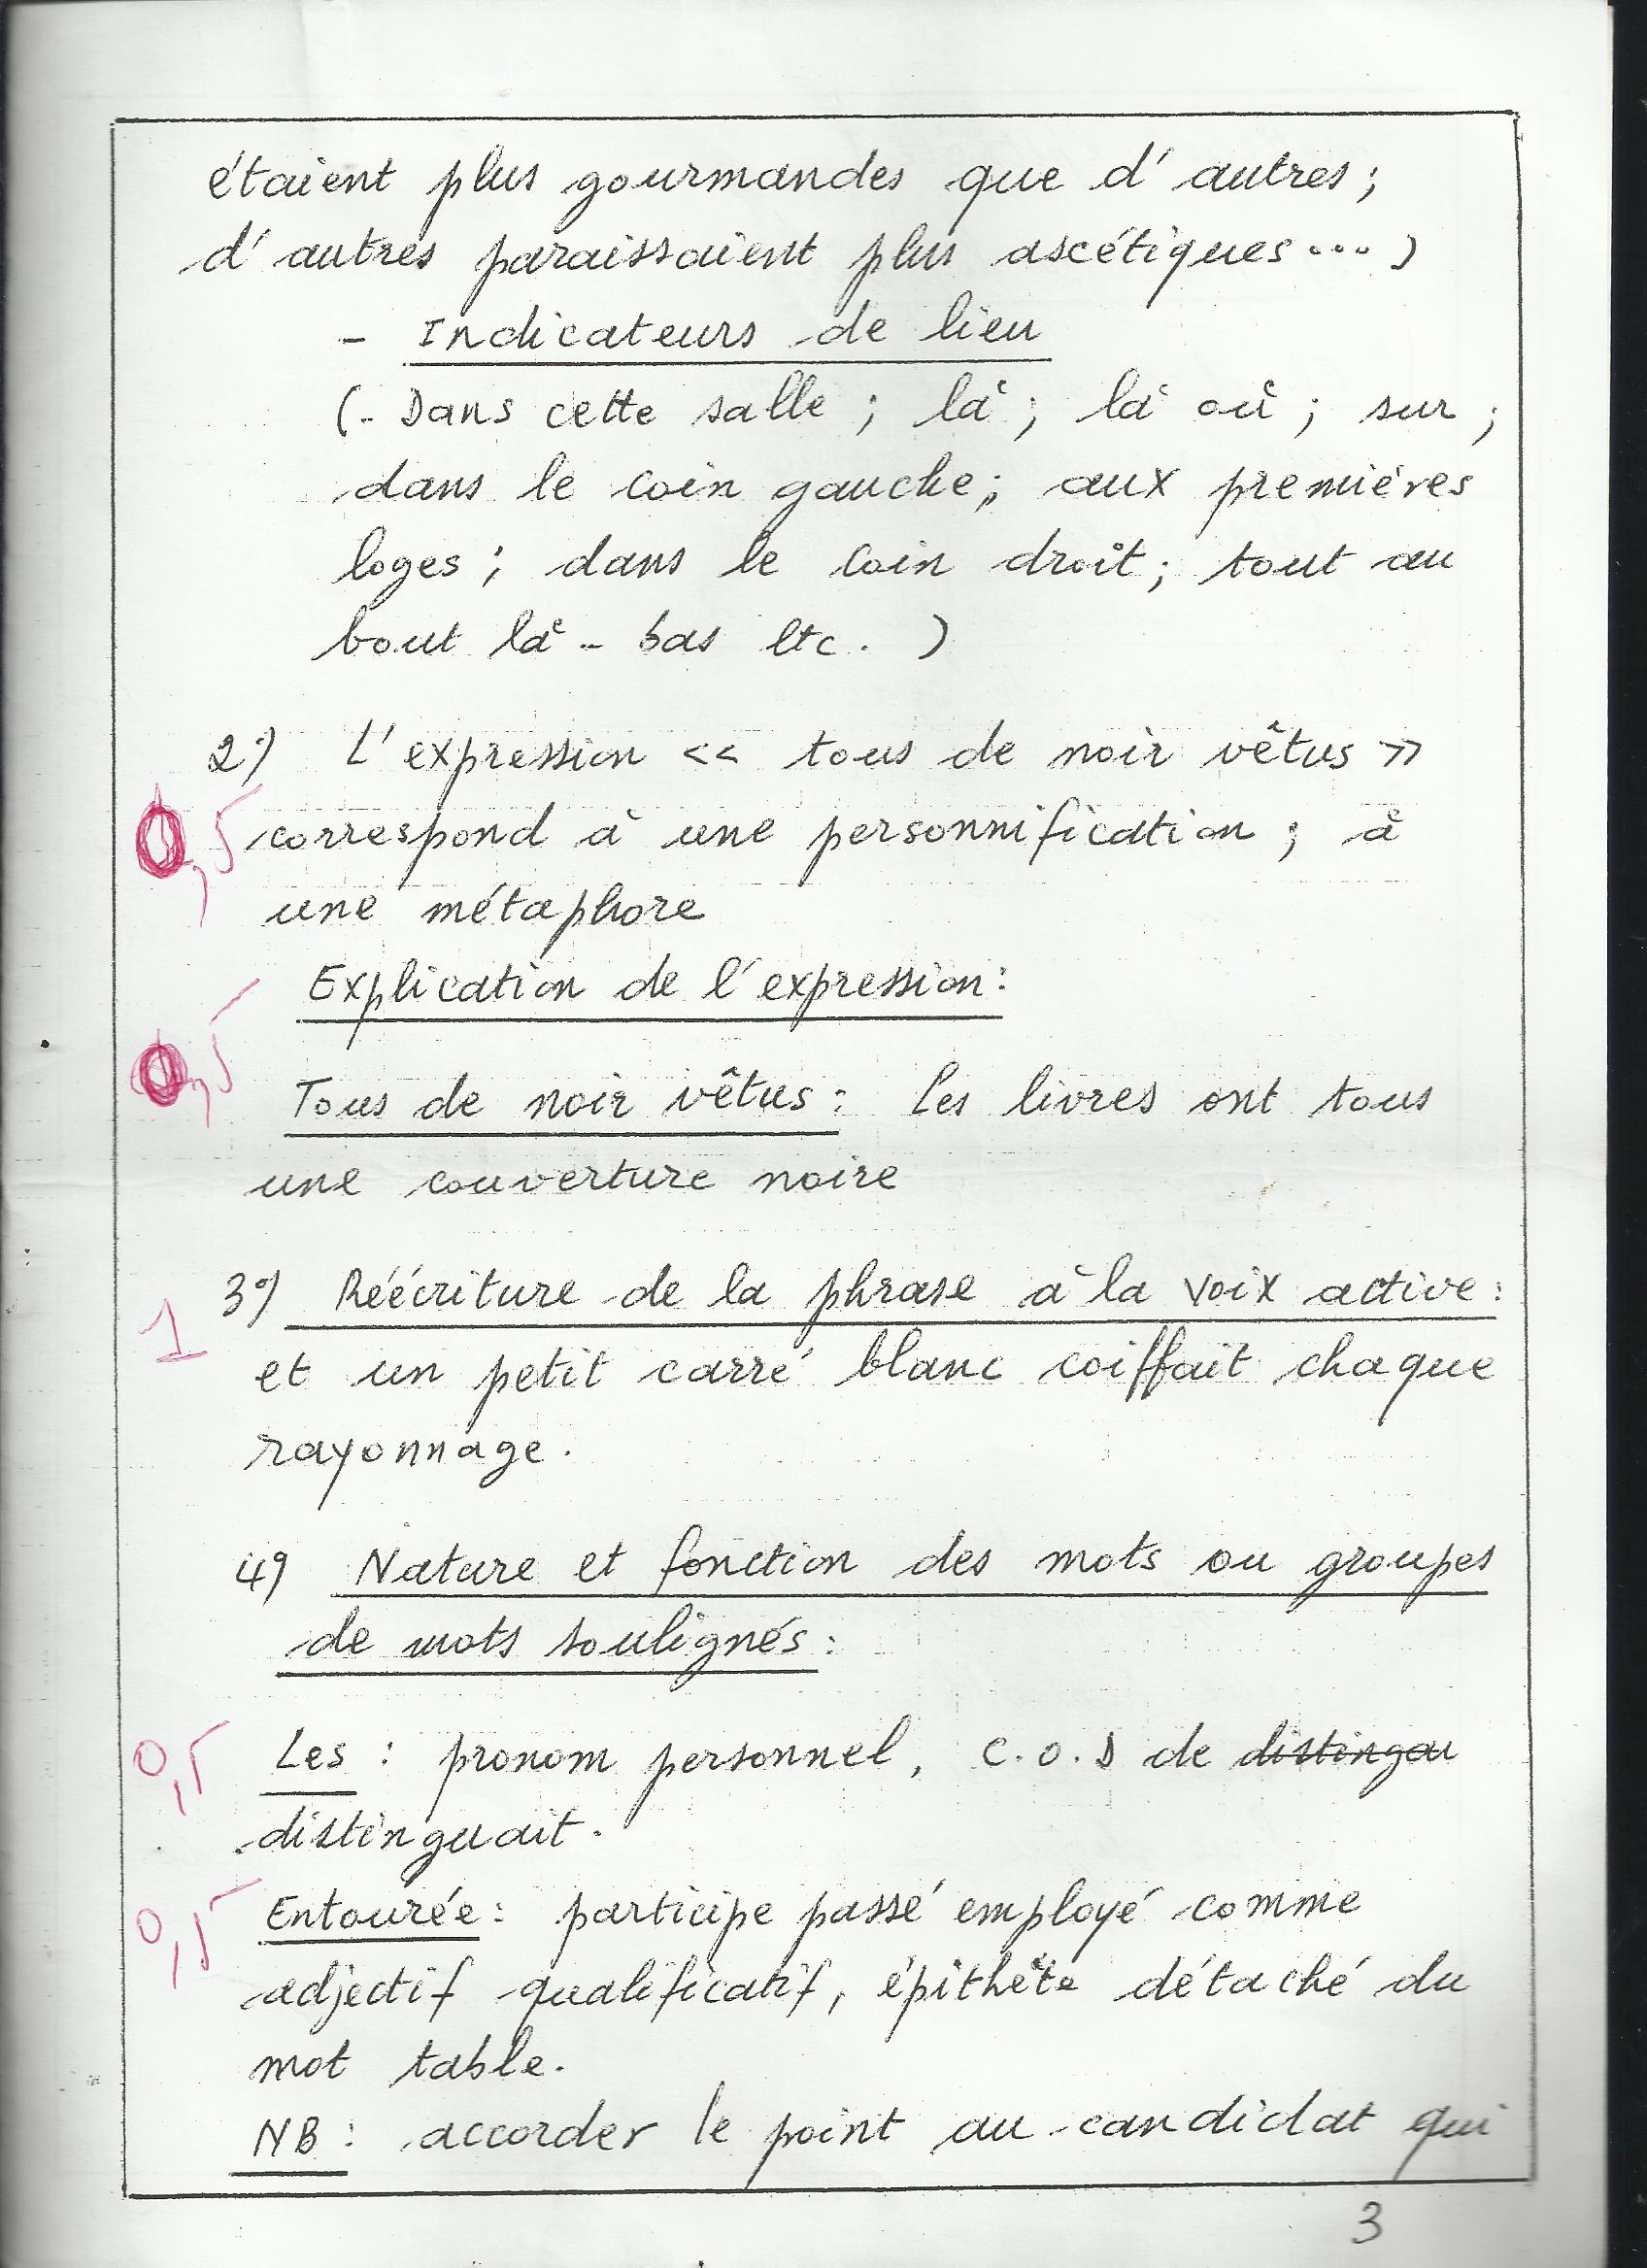 étaient plus gourmandes que d'autres;
d'autres paraissaient plus ascétiques...)
- Indicateurs de lieu
(- Dans cette salle ; là ; là où ; sur ;
dans le coin gauche ; aux premières
loges ; dans le coin droit ; tout au
bout là-bas etc. )
2°) L'expression << tous de noir vêtus >>
0,5 correspond à une personnification ; à
une métaphore
Explication de l'expression :
0,5
Tous de noir vêtus : Les livres ont tous
une couverture noire
3°) Réécriture de la phrase à la voix active :
1
et un petit carré blanc coiffait chaque
rayonnage.
4°) Nature et fonction des mots ou groupes
de mots soulignés :
0,5 Les : pronom personnel, C.O.D de distingau
distinguait.
0,5 Entourée : participe passé employé comme
adjectif qualificatif, épithète détaché du
mot table.
NB : accorder le point au candidat qui
3